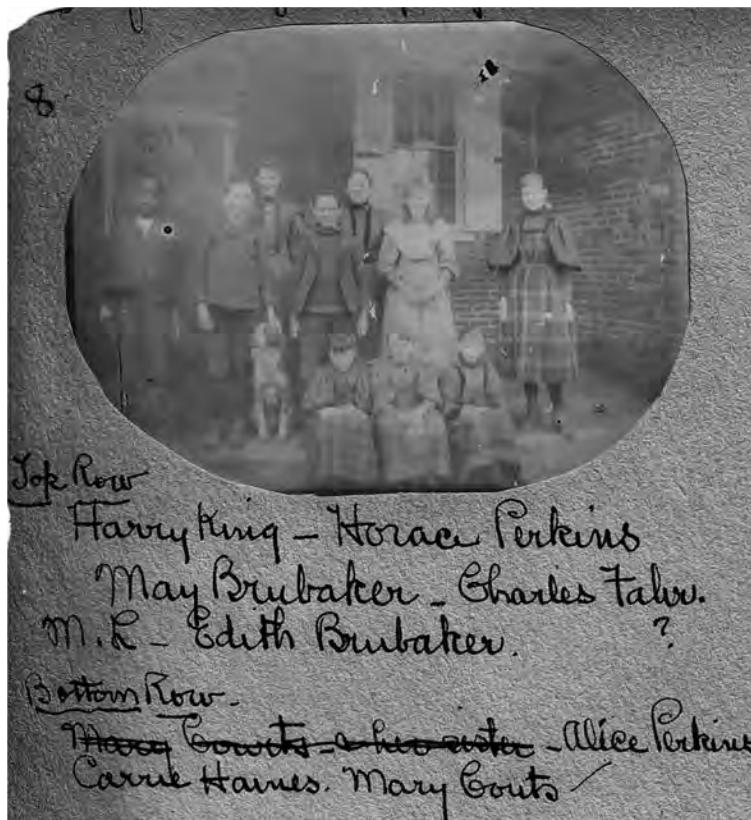 8
Top Row
Harry King - Horace Perkins
May Brubaker - Charles Fahr.
M.L - Edith Brubaker. ?
Bottom Row.
Mary Couts - & her sister - Alice Perkins
Carrie Haines. Mary Couts